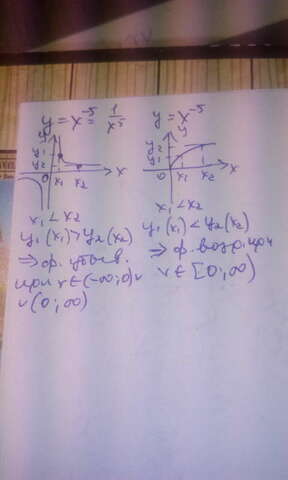 y = x⁻⁵ = 1/x⁵
y
y₁
y₂
0 x₁ x₂ x
x₁ < x₂
y₁(x₁) > y₂(x₂)
⇒ ф. убыв.
при x ∈ (-∞; 0) ∪
∪ (0; ∞)
y = x⁻⁵
y
y₂
y₁
0 x₁ x₂ x
x₁ < x₂
y₁(x₁) < y₂(x₂)
⇒ ф. возр. при
x ∈ [0; ∞)